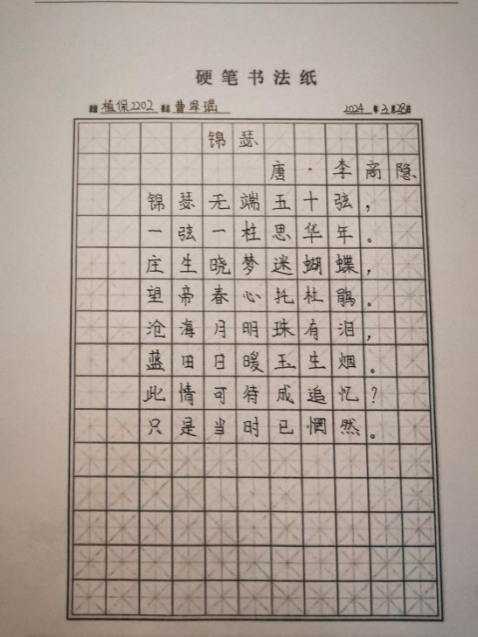 硬笔书法纸
植保2202 曹翠瑶 2024年3月28日
锦瑟
唐·李商隐
锦瑟无端五十弦，
一弦一柱思华年。
庄生晓梦迷蝴蝶，
望帝春心托杜鹃。
沧海月明珠有泪，
蓝田日暖玉生烟。
此情可待成追忆？
只是当时已惘然。